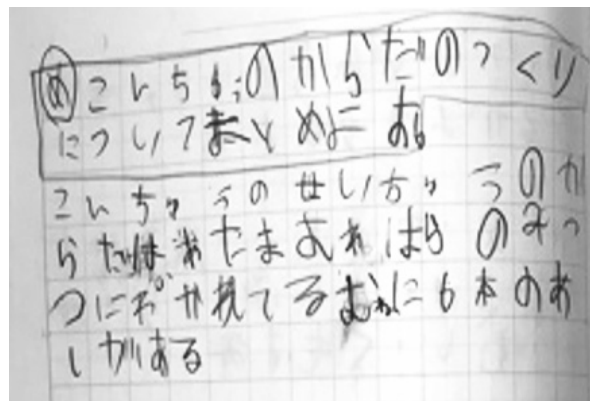 めこんちゅうのからだのつくり
についてまとめよお
こんちゅうのせいちゅうのか
らだはあたまむねはらのみっ
つにわかれてるむねに6本のあ
しがある